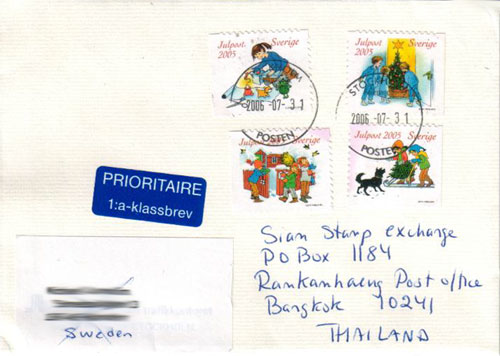 Julpost 2005 Sverige
Julpost 2005 Sverige
2006-07-31
2006-07-31
POSTEN
POSTEN
Julpost 2005 Sverige
Julpost 2005 Sverige
PRIORITAIRE
1:a-klassbrev
Siam Stamp exchange
PO Box 1184
Ramkanhaeng Post office
Bangkok 10241
THAILAND
Sweden